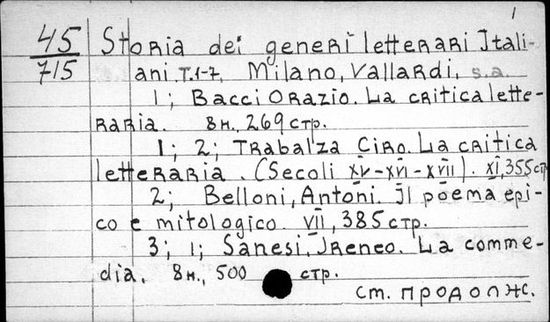 1
45 Storia dei generi letterari Itali-
715 ani T.1-7, Milano, Vallardi, s.a.
1; Bacci Orazio. La critica lette-
raria. 8н., 269 стр.
1; 2; Trabalza Ciro. La critica
letteraria. (Secoli XV-XVI-XVII). XI, 355 стр
2; Belloni, Antoni. Il poema epi-
co e mitologico. VII, 385 стр.
3; 1; Sanesi, Ireneo. La comme-
dia. 8н., 500 стр.
ст. продолж.